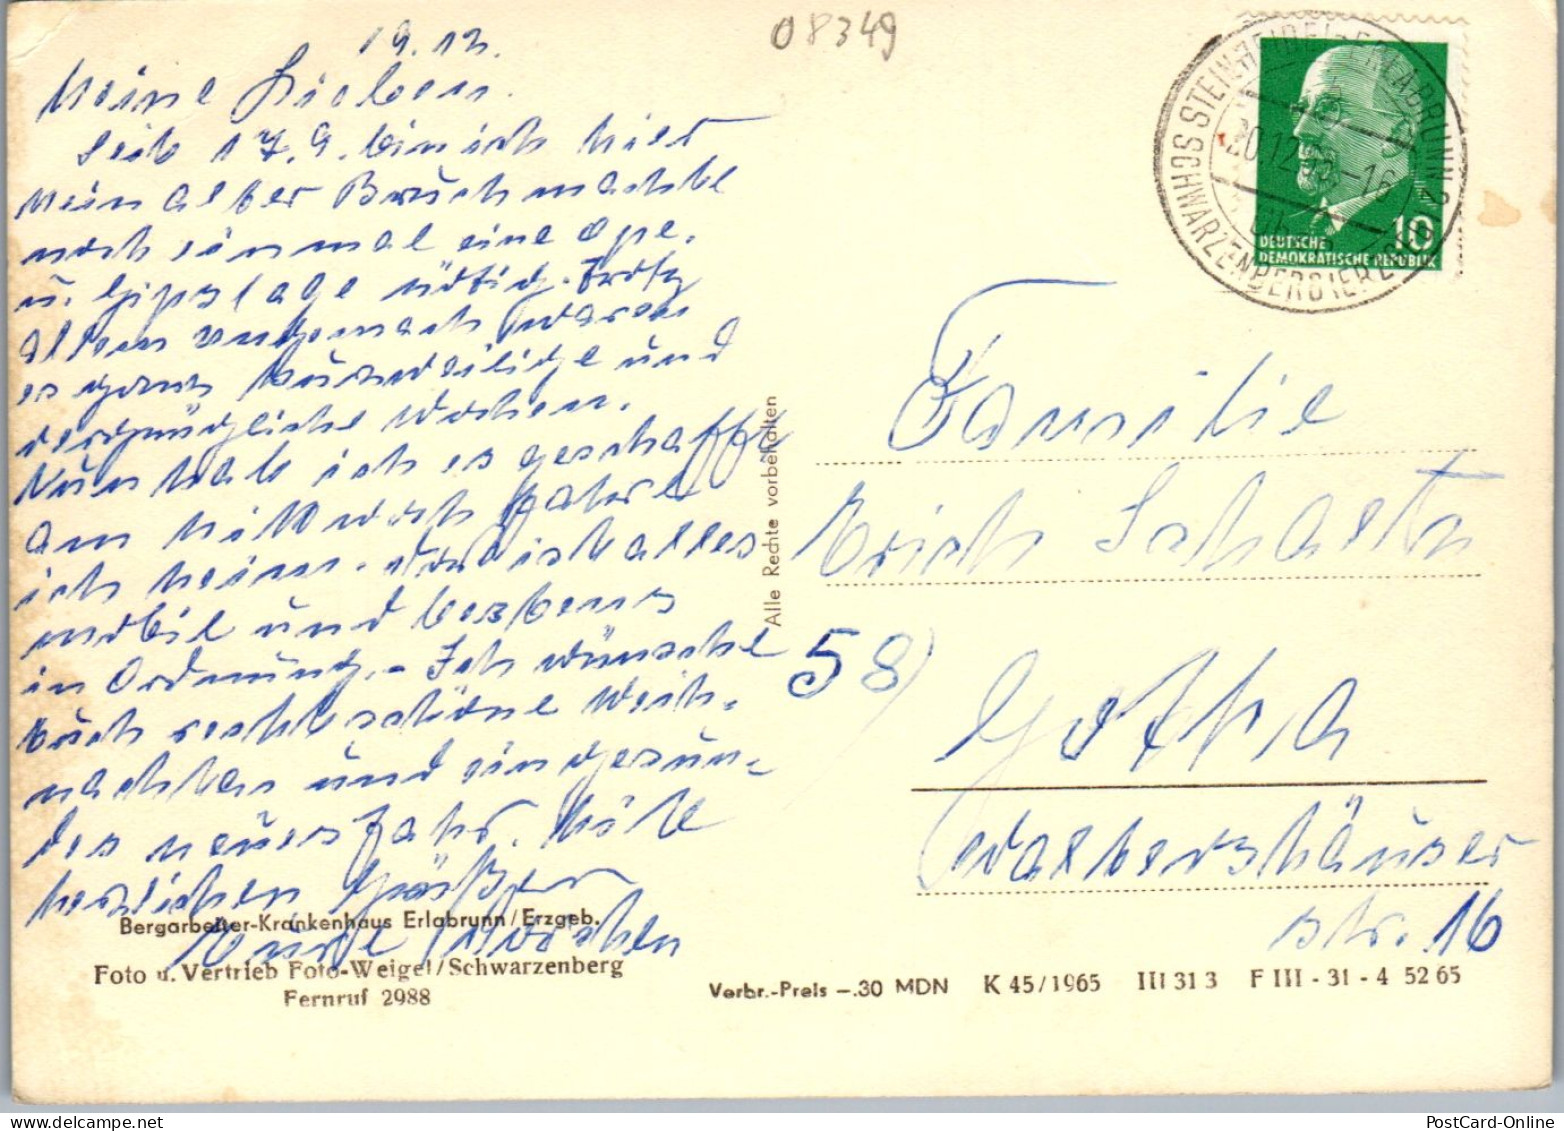 08349
19.12.
Meine Lieben.
Seit 17.9. bin ich hier
mein alter Bruch machte
noch einmal eine Ope.
u. Gipslage nötig. Trotz
allem Ungemach waren
es ganz kurzweilige und
vergnügliche Wochen.
Nun hab ich es geschafft
am Mittwoch fahre
ich heim. Dort ist alles
mobil und bestens
in Ordnung. - Ich wünsche
Euch recht schöne Weih-
nachten und ein gesun-
des neues Jahr. Mit
herzlichen Grüßen
Eure
Bergarbeiter-Krankenhaus Erlabrunn/Erzgeb.
Foto u. Vertrieb Foto-Weigel/Schwarzenberg
Fernruf 2988
Alle Rechte vorbehalten
STEINHEIDEL-ERLABRUNN
20.12.65-16
SCHWARZENBERG (ERZGEB)
DEUTSCHE 10
DEMOKRATISCHE REPUBLIK
Familie
Erich
58) Gotha
Waltershäuser
str. 16
Verbr.-Preis -.30 MDN K 45/1965 III 31 3 F III - 31 - 4 52 65
PostCard-Online